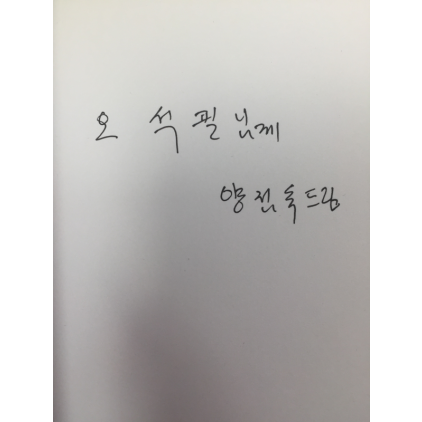 오 석 필 님께
양 진 욱 드림